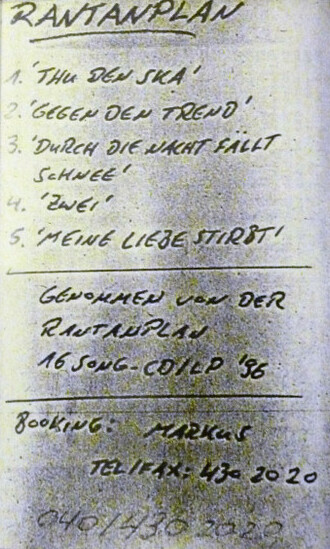 RANTANPLAN
1. 'THU DEN SKA'
2. 'GEGEN DEN TREND'
3. 'DURCH DIE NACHT FÄLLT
SCHNEE'
4. 'ZWEI'
5. 'MEINE LIEBE STIRBT'
GENOMMEN VON DER
RANTANPLAN
16 SONG-CD/LP '96
BOOKING: MARKUS
TEL/FAX: 430 20 20
040/430 2020